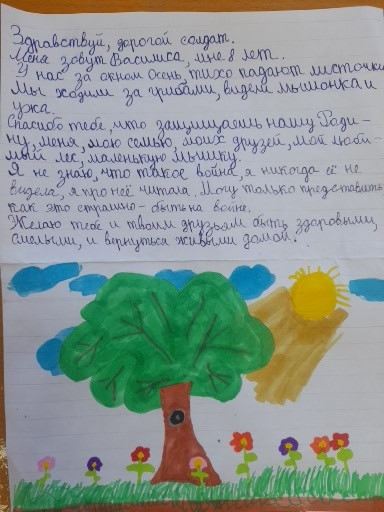 Здравствуй, дорогой солдат.
Меня зовут Василиса, мне 8 лет.
У нас за окном осень, тихо падают листочки.
Мы ходили за грибами, видели мышонка и
ужа.
Спасибо тебе, что защищаешь нашу Роди-
ну, меня, мою семью, моих друзей, мой люби-
мый лес, маленькую мышку.
Я не знаю, что такое война, я никогда её не
видела, я про неё читала. Могу только представить
как это страшно - быть на войне.
Желаю тебе и твоим друзьям быть здоровыми,
смелыми, и вернуться живыми домой!